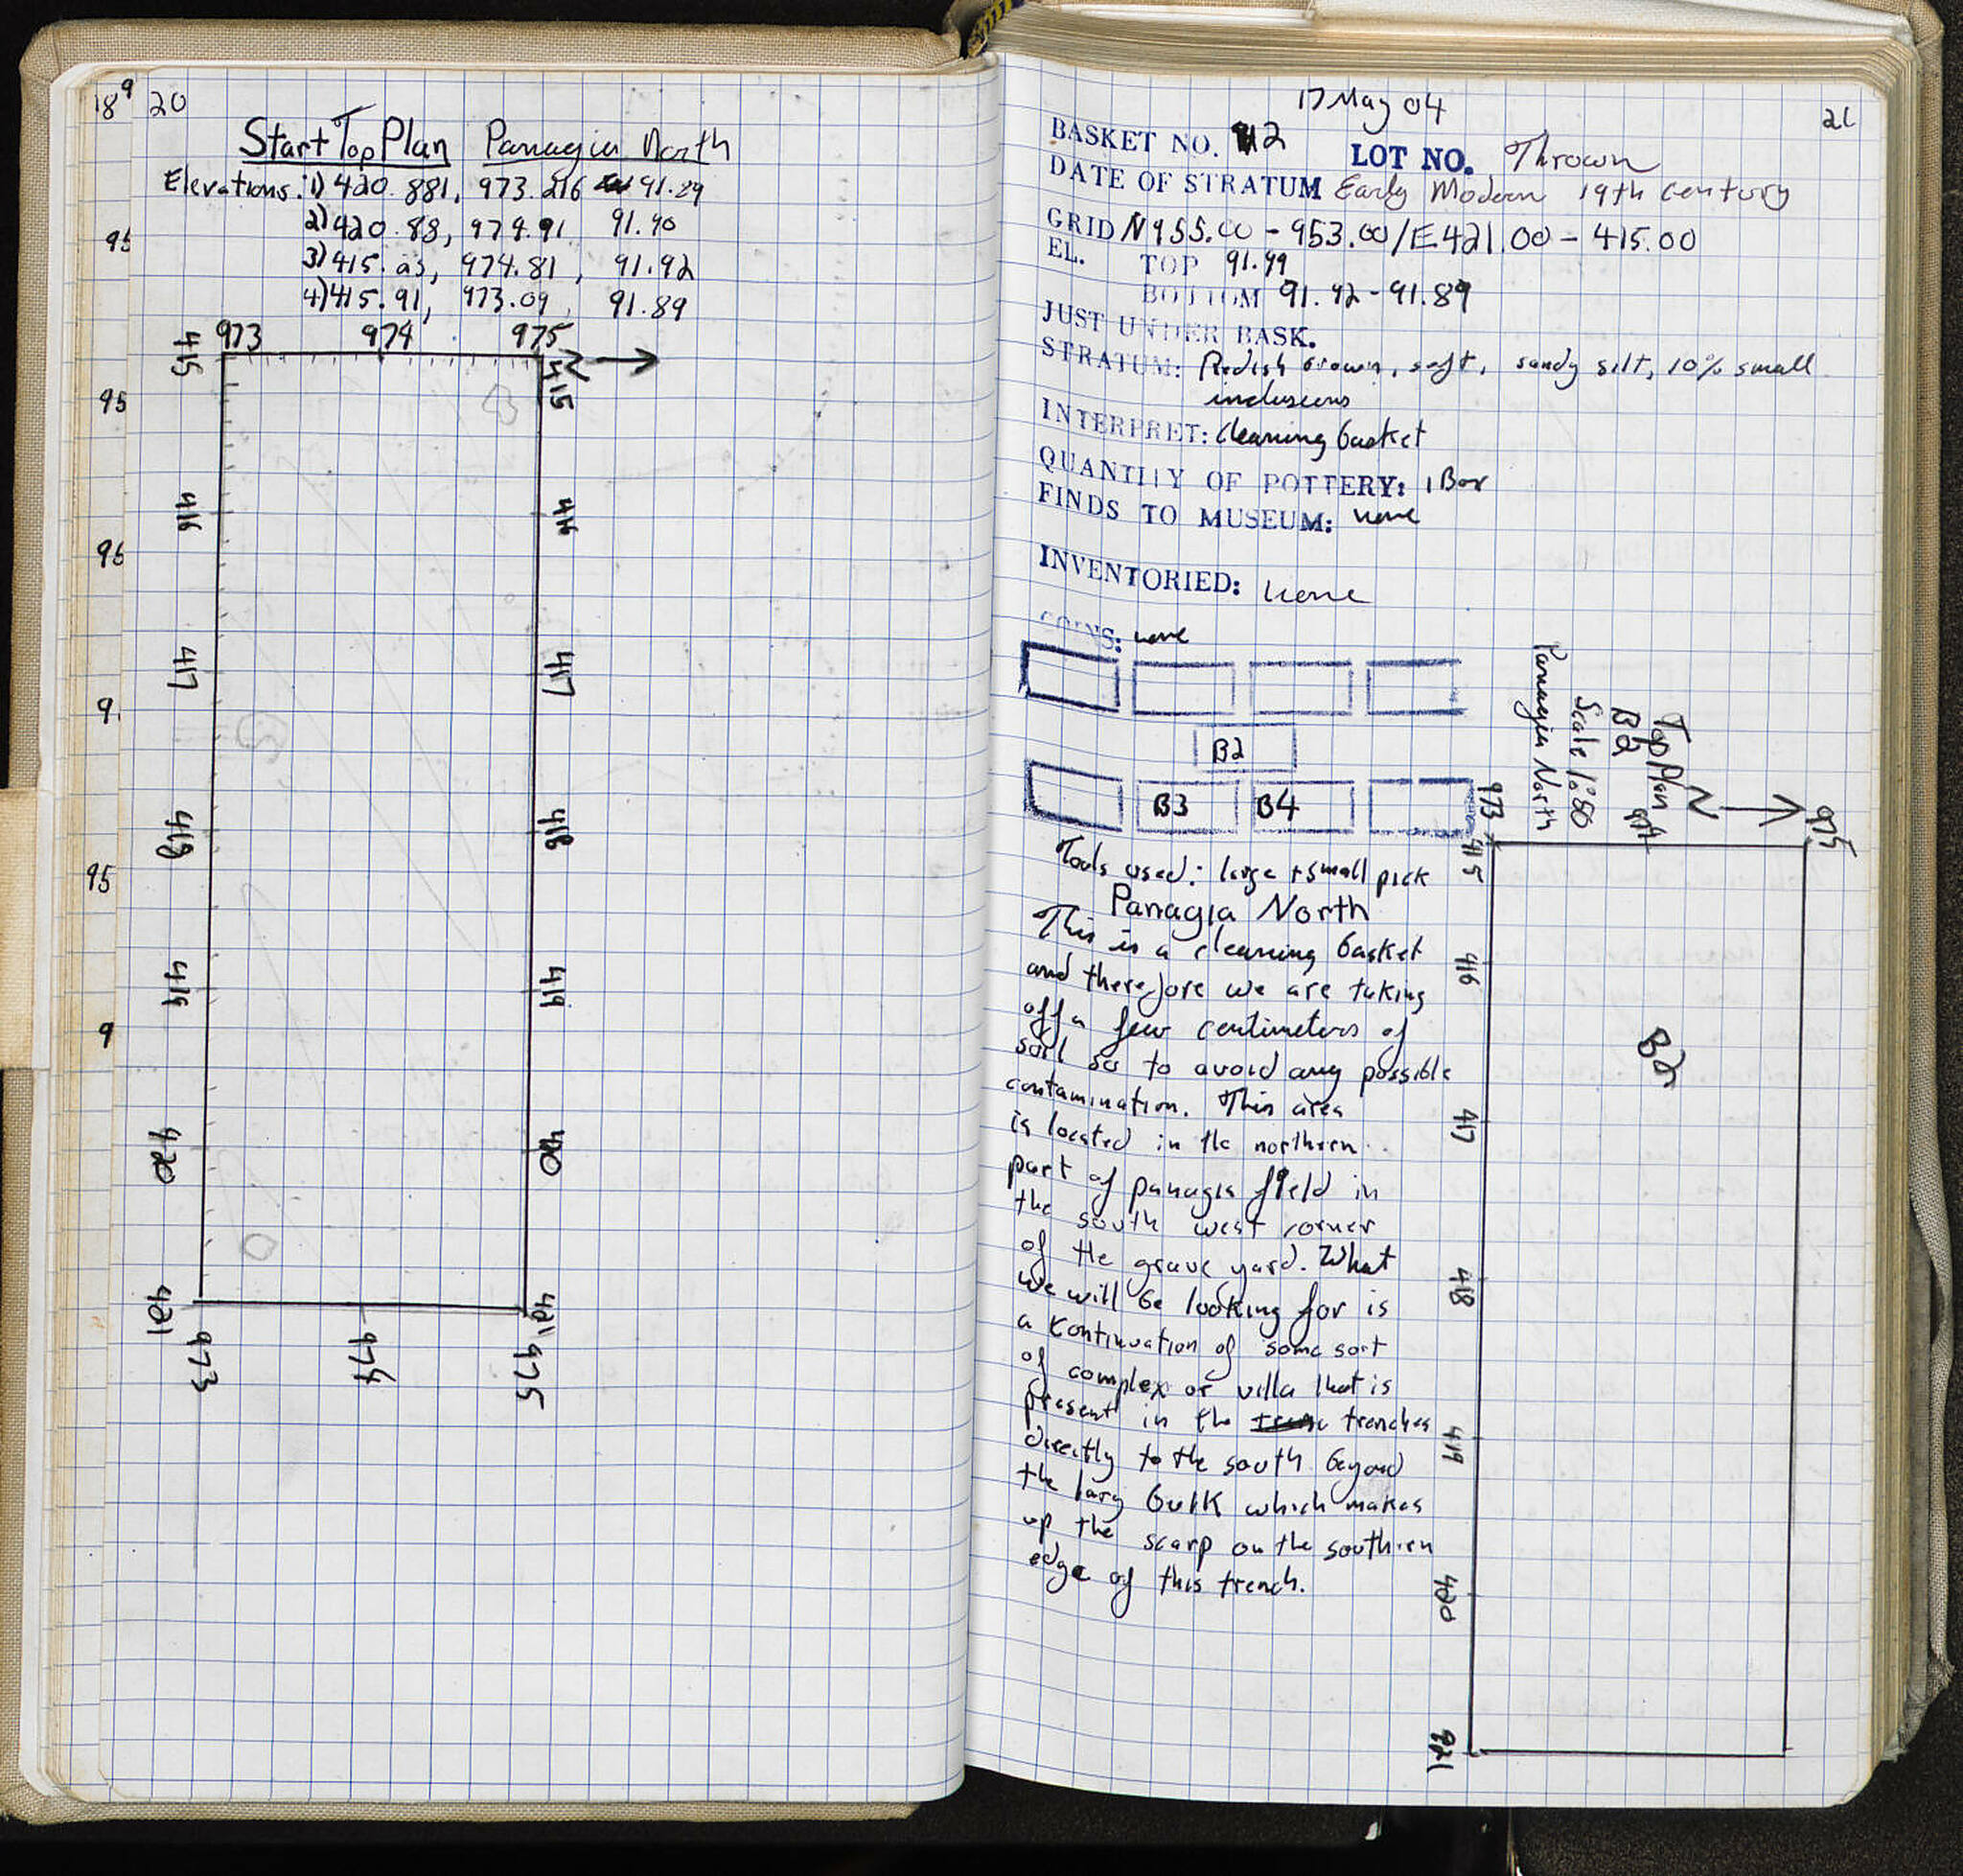 20
Start Top Plan Panagia North
Elevations: 1) 420.881, 973.216 91.89
2) 420.88, 974.91 91.90
3) 415.23, 974.81, 91.92
4) 415.91, 973.09, 91.89
973 974 975
N
415 415
416 416
417 417
418 418
419 419
420 420
421 421
973 974 975
17 May 04
21
BASKET NO. 2 LOT NO. Thrown
DATE OF STRATUM Early Modern 19th century
GRID N955.00 - 953.00/E421.00 - 415.00
EL. TOP 91.99
BOTTOM 91.92 - 91.89
JUST UNDER BASK.
STRATUM: Redish brown, soft, sandy silt, 10% small
inclusions
INTERPRET: Cleaning basket
QUANTITY OF POTTERY: 1 Box
FINDS TO MUSEUM: none
INVENTORIED: none
COINS: none
B2
B3 B4
Tools used: large + small pick
Panagia North
This is a cleaning basket
and therefore we are taking
off a few centimeters of
soil so to avoid any possible
contamination. This area
is located in the northern
part of panagia field in
the south west corner
of the grave yard. What
we will be looking for is
a kontinuation of some sort
of complex or villa that is
present in the trenches
directly to the south beyond
the larg bulk which makes
up the scarp on the southern
edge of this trench.
Top Plan
B2
Scale 1:80
Panagia North
N
973 974 975
415
416
417
418
419
420
421
B2